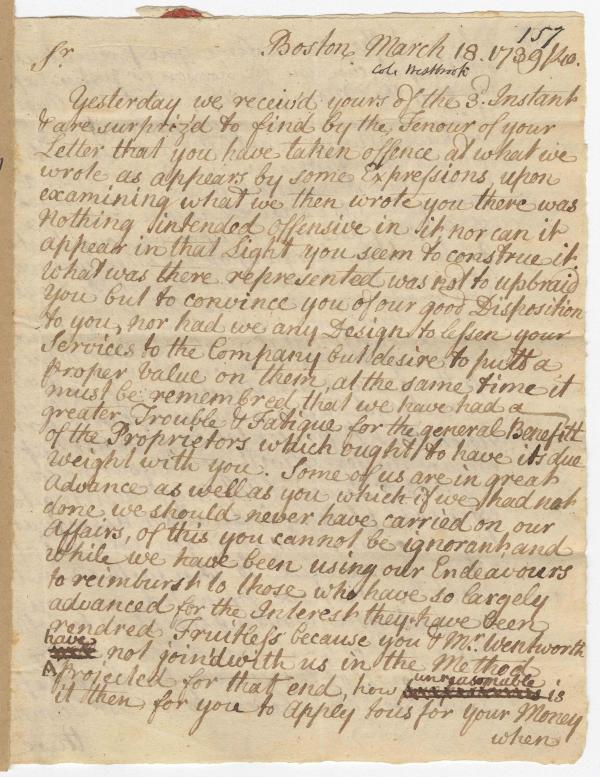 157
Boston March 18. 1739/40.
Sr.
Colo Westbrook
Yesterday we receivd yours of the 3. Instant
& are surpriz'd to find by the Tenour of your
Letter that you have taken offence at what we
wrote as appears by some Expressions, upon
examining what we then wrote you there was
Nothing intended offensive in it nor can it
appear in that Light you seem to construe it
what was there represented was not to upbraid
You but to convince you of our good Disposition
to you, nor had we any Design to lessen your
Services to the Company but desire to putt a
proper value on them, at the same time it
must be remembred that we have had a
greater Trouble & Fatigue for the general Benefitt
of the Proprietors which ought to have its due
weight with you. Some of us are in great
Advance as well as you which if we had not
done we should never have carried on our
Affairs, of this you cannot be ignorant and
while we have been using our Endeavours
to reimburse to those who have so largely
advanced for the Interest they have been
rendred Fruitless because you & Mr. Wentworth
have not join'd with us in the Method
projected for that end, how unreasonable is
it then for you to apply to us for your Money
when